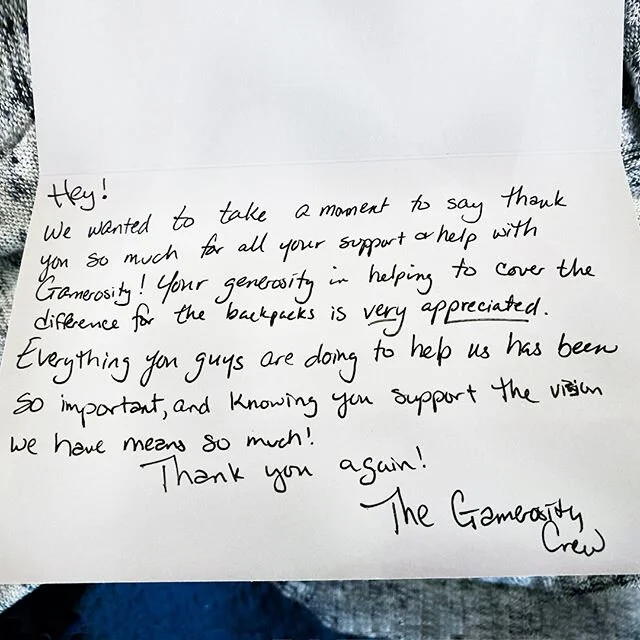 Hey!
We wanted to take a moment to say thank
you so much for all your support & help with
Gamerosity! Your generosity in helping to cover the
difference for the backpacks is very appreciated.
Everything you guys are doing to help us has been
so important, and knowing you support the vision
we have means so much!
Thank you again!
The Gamerosity
Crew